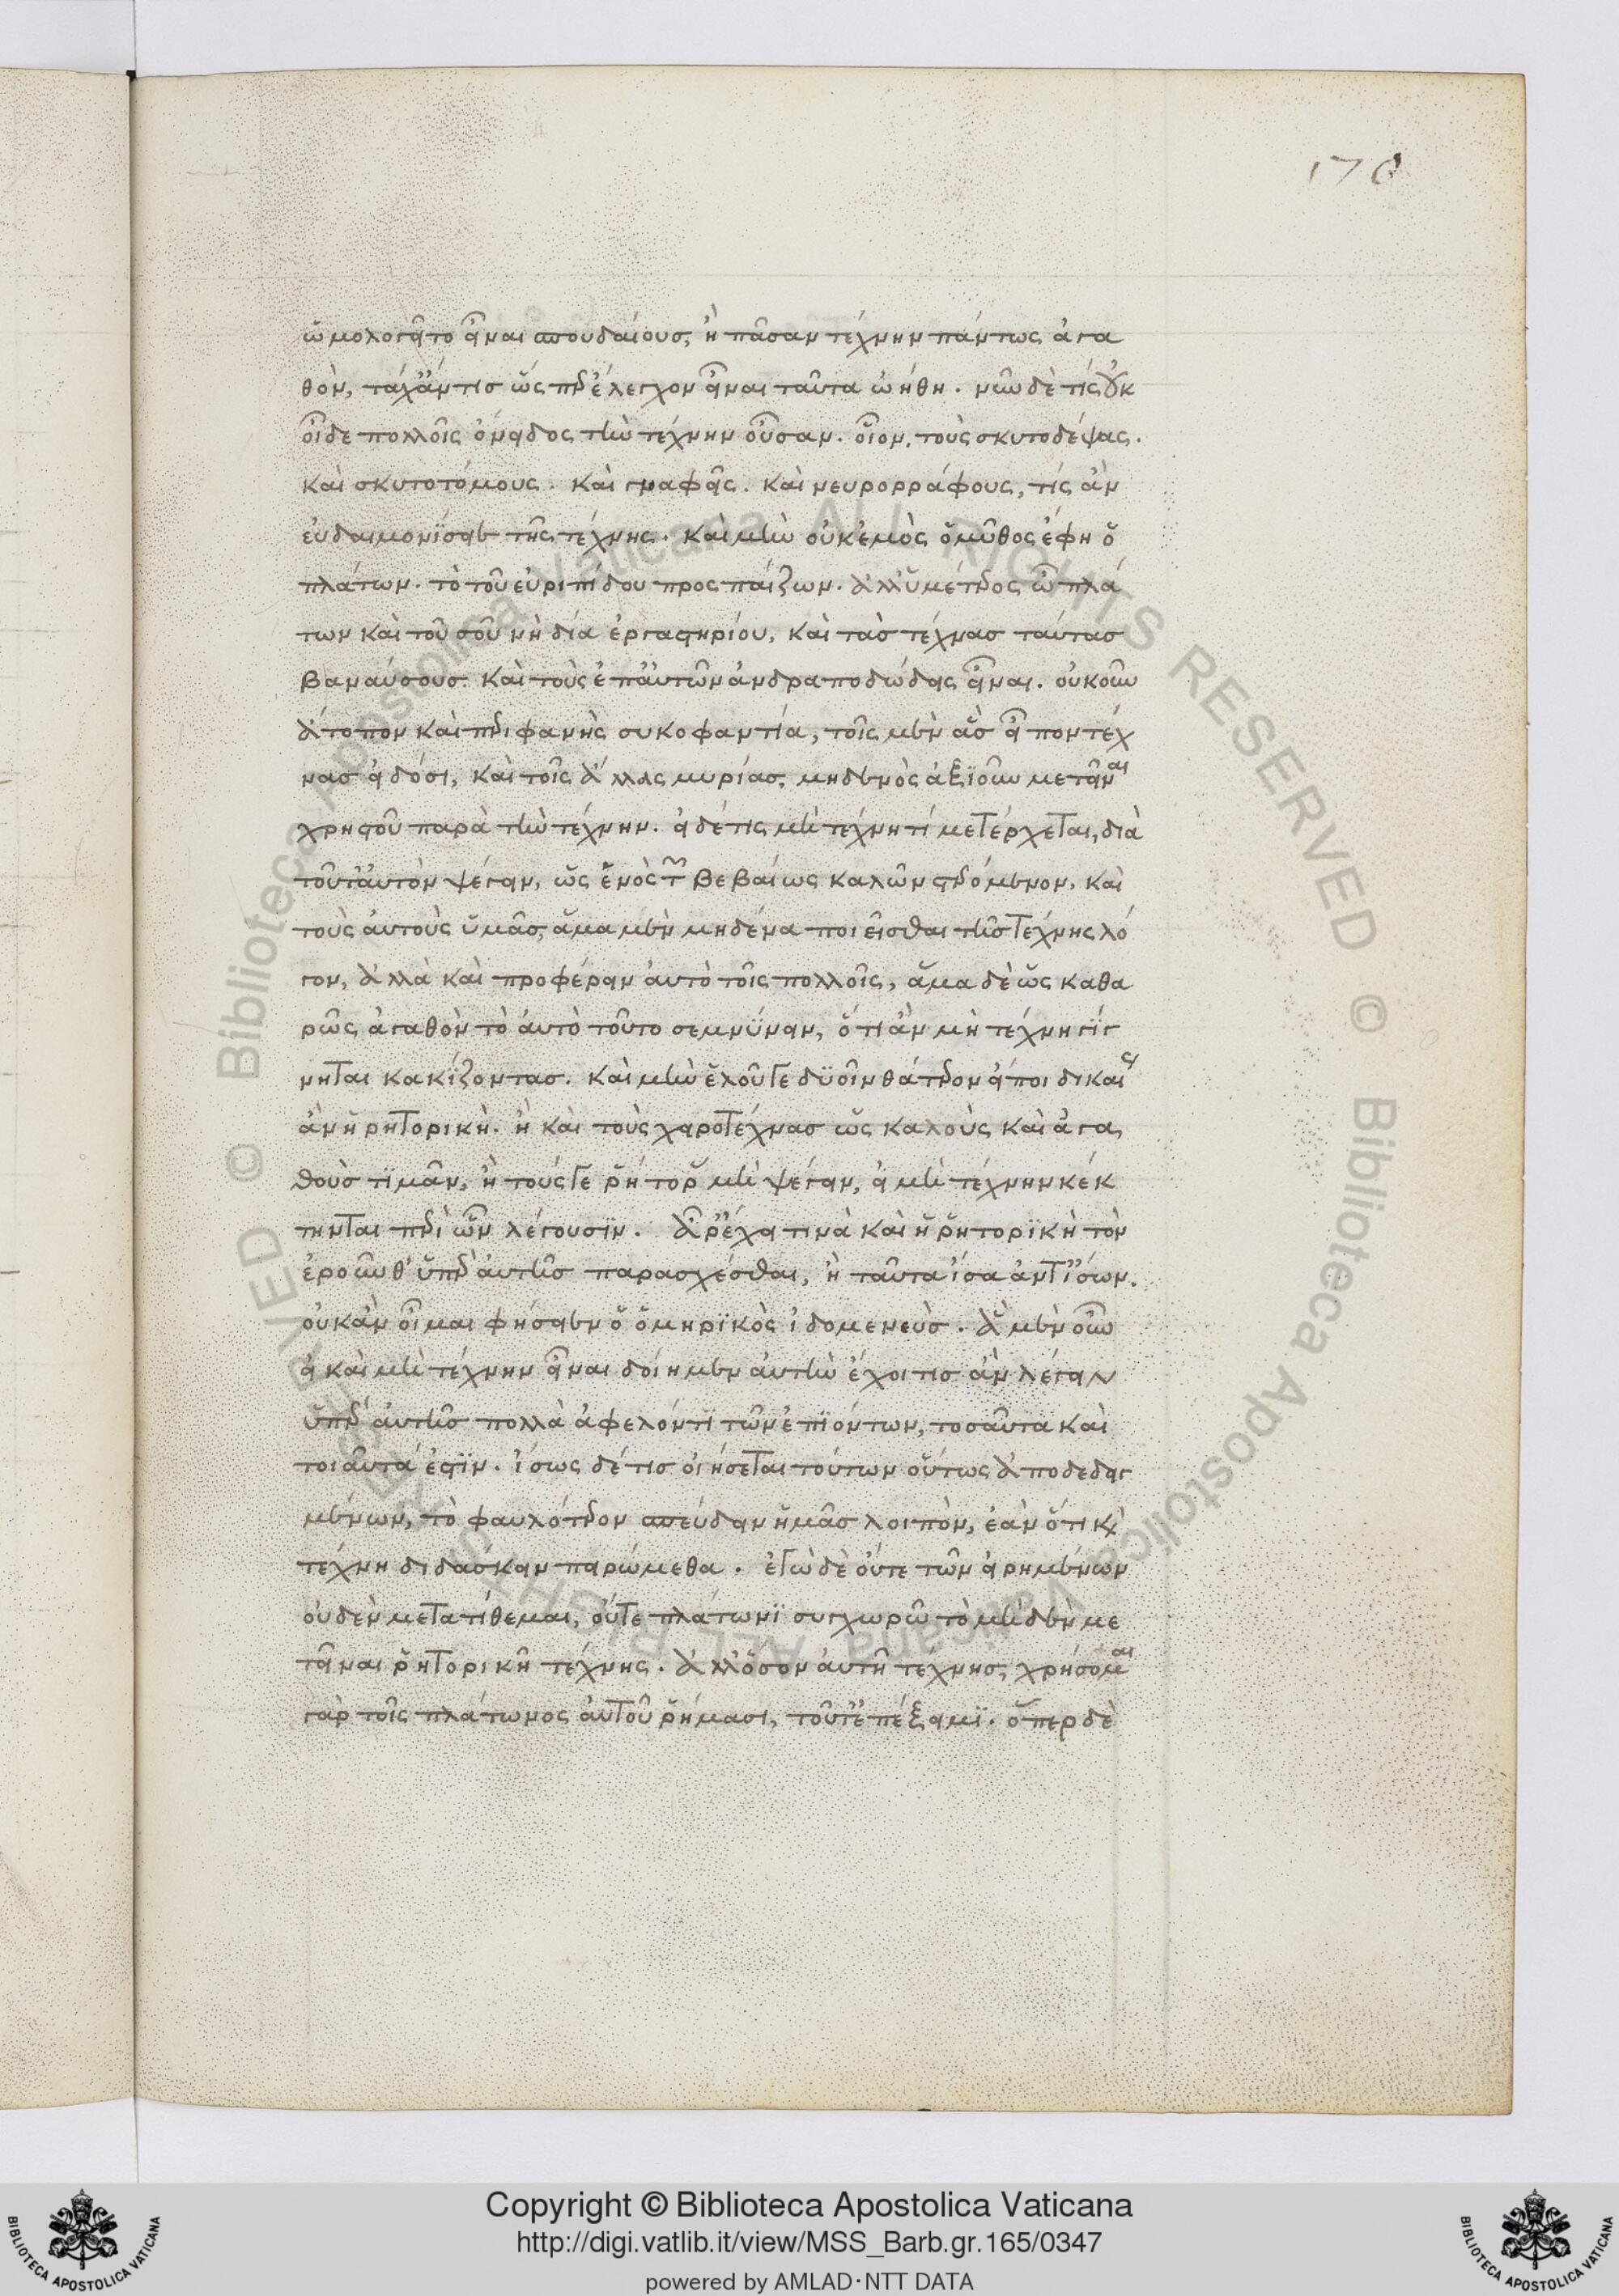 170
ὡμολογεῖτο εἶναι σπουδαίους, ἢ πᾶσαν τέχνην πάντως ἀγα
θὸν, τάχἄν τισ ὡς περ ἔλεγχον εἶναι ταῦτα ᾠήθη. νῦν δὲ τίς οὐκ
οἶδε πολλοῖς ὄνειδος τὴν τέχνην οὖσαν. οἷον, τοὺς σκυτοδέψας.
καὶ σκυτοτόμους. καὶ γναφεῖς. καὶ νευρορράφους, τίς ἂν
εὐδαιμονίσειεν τῆς τέχνης. καὶ μὴν οὐκ ἐμὸς ὁ μῦθος ἔφη ὁ
πλάτων. τὸ τοῦ εὐριπίδου προσπαίζων. ἀλλ' ὑμέτερος ὦ πλά
των καὶ τοῦ σοῦ νὴ δία ἐργαστηρίου, καὶ τὰσ τέχνασ ταύτασ
βαναύσουσ. καὶ τοὺς ἐπ' αὐτῶν ἀνδραποδώδεις εἶναι. οὐκοῦν
ἄτοπον καὶ περιφανὴς συκοφαντία, τοῖς μὲν ἃσ εἶπον τέχ
νασ εἰδόσι, καὶ τοῖς ἄλλας μυρίασ, μηδενὸς ἀξιοῦν μετεῖναι
χρηστοῦ παρὰ τὴν τέχνην. εἰ δέ τις μὴ τέχνῃ τί μετέρχεται, διὰ
τοῦτ' αὐτὸν ψέγειν, ὡς ἑνὸς τῶν βεβαίως καλῶν στερόμενον. καὶ
τοὺς αὐτοὺς ὑμᾶσ, ἅμα μὲν μηδένα ποιεῖσθαι τῆσ τέχνης λό
γον, ἀλλὰ καὶ προφέρειν αὐτὸ τοῖς πολλοῖς, ἅμα δὲ ὡς καθα
ρῶς ἀγαθὸν τὸ αὐτὸ τοῦτο σεμνύνειν, ὅτι ἂν μὴ τέχνῃ γίγ
νηται κακίζοντασ. καὶ μὴν ἑλοῦ γε δυοῖν θάτερον εἴποι δικαίως
ἂν ἡ ρητορικὴ. ἢ καὶ τοὺς χειροτέχνασ ὡς καλοὺς καὶ ἀγα
θοὺσ τιμᾶν, ἢ τούς γε ῥήτορας μὴ ψέγειν, εἰ μὴ τέχνην κέκ
τηνται περὶ ὧν λέγουσιν. ἆρ' ἔχει τινὰ καὶ ἡ ῥητορικὴ τὸν
ἐροῦνθ' ὑπὲρ αὐτῆσ παρασχέσθαι, ἢ ταῦτα ἴσα ἀντ' ἴσων.
οὐκ ἂν οἶμαι φήσειεν ὁ ὁμηρικὸς ἰδομενεὺσ. ἃ μὲν οὖν
εἰ καὶ μὴ τέχνην εἶναι δοίημεν αὐτὴν ἔχοι τισ ἂν λέγειν
ὑπὲρ αὐτῆσ πολλὰ ἀφελόντι τῶν ἐπιόντων, τοσαῦτα καὶ
τοιαῦτά ἐστιν. ἴσως δέ τισ οἰήσεται τούτων οὕτως ἀποδεδειγ
μένων, τὸ φαυλότερον σπεύδειν ἡμᾶσ λοιπὸν, ἐὰν ὅτι καὶ
τέχνη διδάσκειν παρώμεθα. ἐγὼ δὲ οὔτε τῶν εἰρημένων
οὐδὲν μετατίθεμαι, οὔτε πλάτωνι συγχωρῶ τὸ μὴδὲν με
τεῖναι ῥητορικῇ τέχνης. ἀλλ' ὅσον αὐτῆ τέχνησ, χρήσομαι
γὰρ τοῖς πλάτωνος αὐτοῦ ῥήμασι, τοῦτ' ἐπέξειμι. ὅπερ δὲ
Copyright © Biblioteca Apostolica Vaticana
http://digi.vatlib.it/view/MSS_Barb.gr.165/0347
powered by AMLAD·NTT DATA